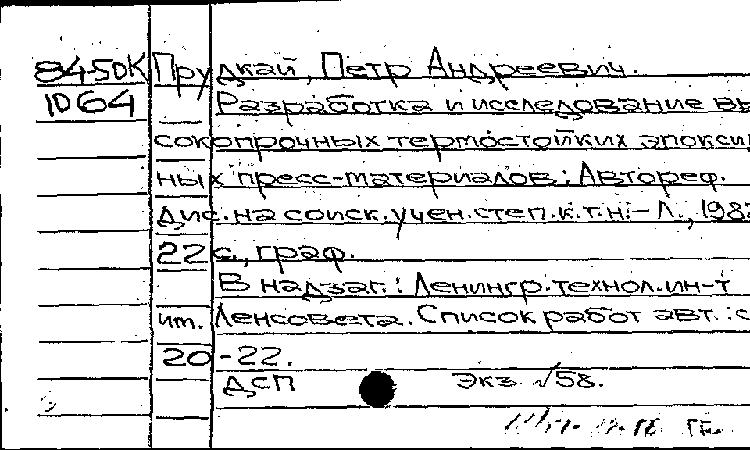 84-5ДК Прудкай, Петр Андреевич.
1064 Разработка и исследование вы
сокопрочных термостойких эпоксид
ных пресс-материалов: Автореф.
дис. на соиск. учен. степ. к.т.н. - Л., 198
22 с., граф.
В надзаг.: Ленингр. технол. ин-т
им. Ленсовета. Список работ авт.: с
20-22.
ДСП Экз №58.